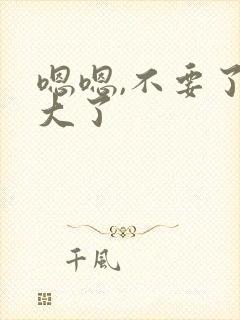 嗯嗯,不要了
大了
千風